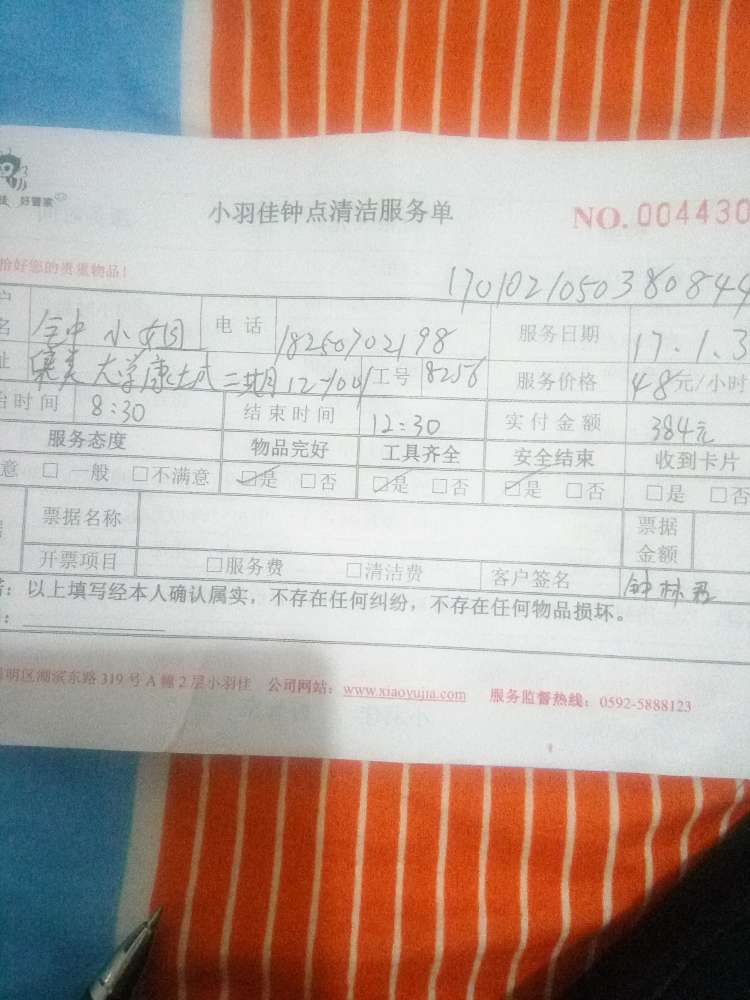 好管家
小羽佳钟点清洁服务单 NO. 004430
拾好您的贵重物品！
1701021050380844
名 小姐 电话 18250702198 服务日期 17.1.3
址 大学康城二期12-1001 工号 8256 服务价格 48元/小时
始时间 8:30 结束时间 12:30 实付金额 384元
服务态度 物品完好 工具齐全 安全结束 收到卡片
意 □一般 □不满意 ☑是 □否 ☑是 □否 ☑是 □否 □是 □否
票据名称 票据金额
开票项目 □服务费 □清洁费 客户签名 钟林
：以上填写经本人确认属实，不存在任何纠纷，不存在任何物品损坏。
：
明区湖滨东路319号A幢2层小羽佳 公司网站：www.xiaoyujia.com 服务监督热线：0592-5888123